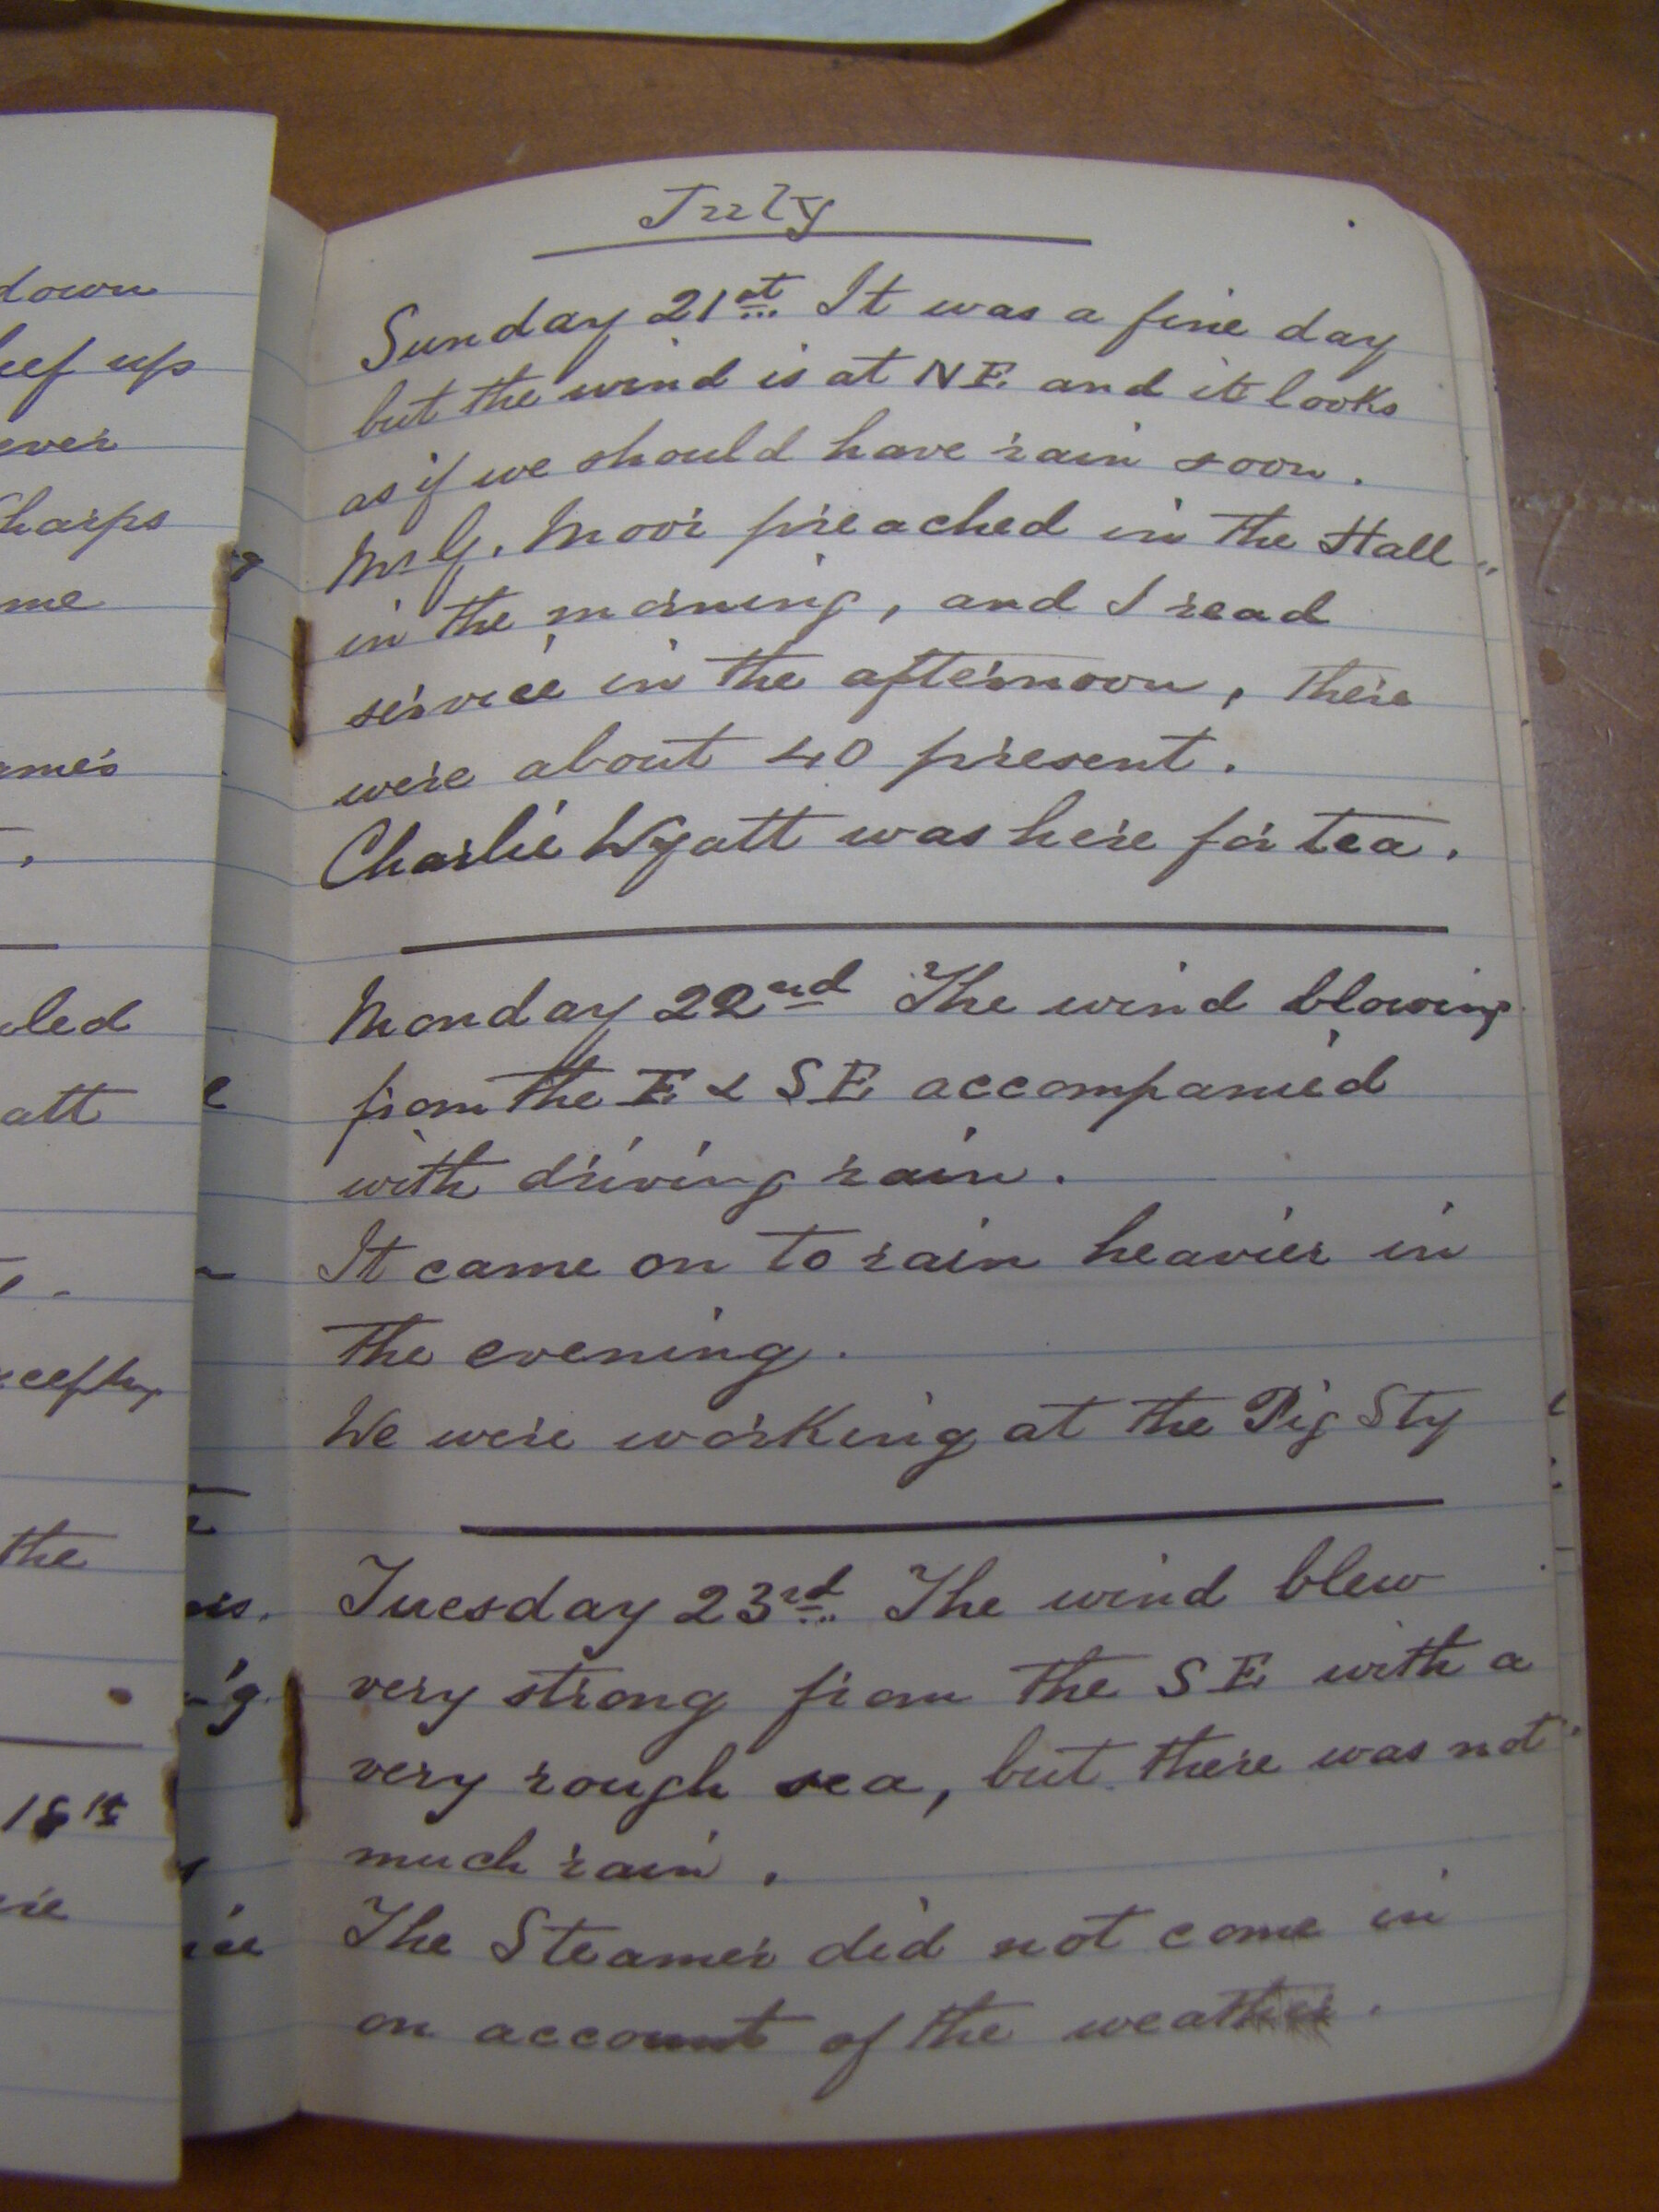 July
Sunday 21st It was a fine day
but the wind is at NE and it looks
as if we should have rain soon.
Mr G. Moor preached in the Hall
in the morning, and I read
service in the afternoon, there
were about 40 present.
Charlie Wyatt was here for tea.
Monday 22nd The wind blowing
from the E & SE accompanied
with driving rain.
It came on to rain heavier in
the evening.
We were working at the Pig Sty
Tuesday 23rd The wind blew
very strong from the SE with a
very rough sea, but there was not
much rain.
The Steamer did not come in
on account of the weather.
down
up
ever
me
att
the
18th